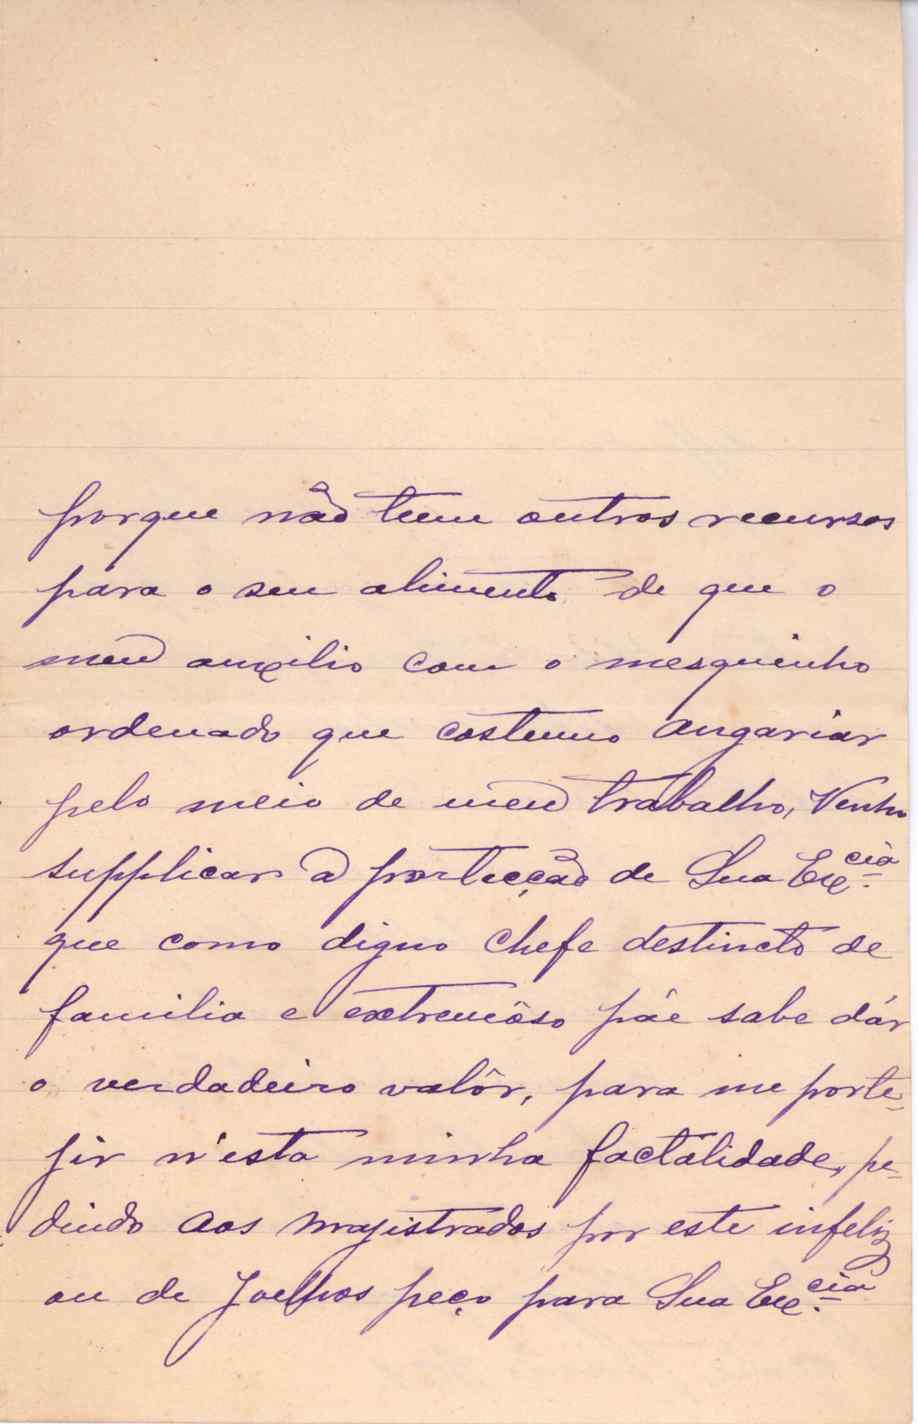 porque não tem outros recursos
para o seu alimento de que o
meu auxilio com o mesquinho
ordenado que costumo angariar
pelo meio de meu trabalho, Venho
supplicar a portecção de Sua Exᶜⁱᵃ.
que como digno Chefe destincto de
familia e extremôso páe sabe dár
o verdadeiro valôr, para me porte=
jir n'esta minha factálidade, pe=
dindo aos Magistrados por este infeliz
ou de Joelhos peço para Sua Exᶜⁱᵃ.